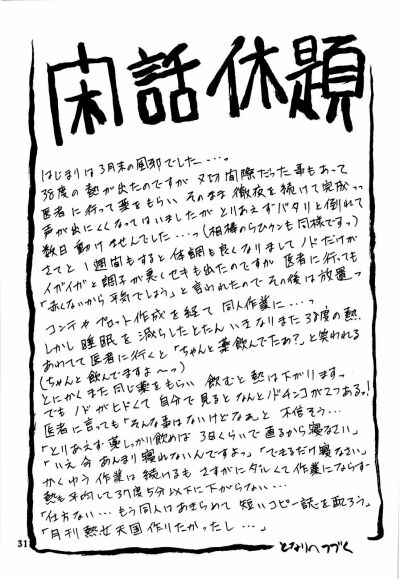 閑話休題
はじまりは3月末の風邪でした…。
38度の熱が出たのですが〆切間際だった事もあって
医者に行って薬をもらい そのまま徹夜を続けて完成…
声が出にくくなってはいましたが とりあえずバタリと倒れて
数日動けませんでした…っ(相棒のらひクンも同様ですっ)
さてと1週間もすると体調も良くなりまして ノドだけが
イガイガと調子が悪くセキも出たのですが 医者に行っても
「赤くないから平気でしょう」と言われたので その後は放置っ
コンテや プロット作成を経て 同人作業に…っ
しかし睡眠を減らしたとたん いきなりまた38度の熱
あわてて医者に行くと「ちゃんと薬飲んでたぁ?」と笑われる
(ちゃんと飲んでますよ〜っ)
とにかくまた同じ薬をもらい 飲むと熱は下がりますっ
でも ノドがヒドくて自分で見ると なんとノドチンコが2つあるっ!
医者に言っても「そんな事はないけどなぁ」と 不信そう…
「とりあえず薬しっかり飲めば 3日くらいで直るから寝なさい」
「いえ今 あんまり寝れないんですよっ」「できるだけ寝なさい」
かくゆう作業は続けるも さすがにダルくて作業にならず…
熱も平均して37度5分以下に下がらない…
「仕方ない…もう同人はあきらめて 短いコピー誌を配ろう」
「月刊熟女天国作りたかったし…」
となりへつづく
31